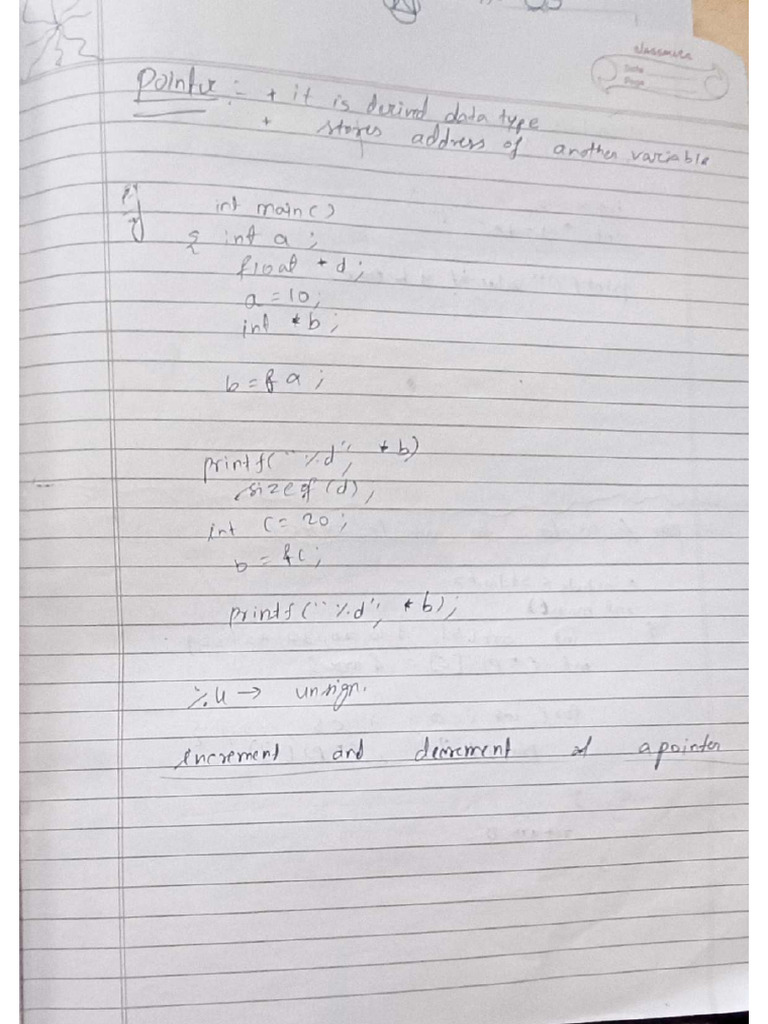 classmate
Date
Page
Pointer :- + it is derived data type
+ stores address of another variable
int main()
{ int a ;
float * d ;
a = 10 ;
int * b ;
b = & a ;
printf( "%d", * b)
sizeof (d),
int c = 20 ;
b = &c ;
printf ( "%d", * b) ;
%u → unsign.
increment and decrement of a pointer